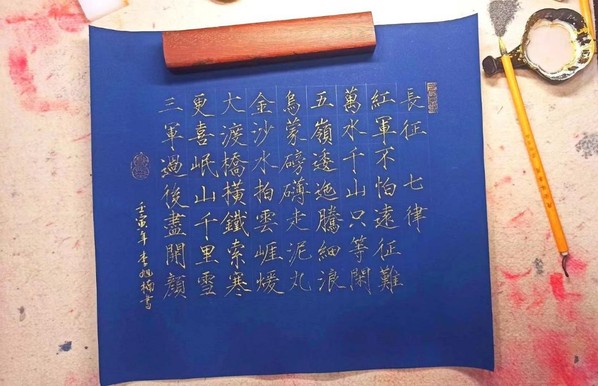 長征 七律
紅軍不怕遠征難
萬水千山只等閑
五嶺逶迤騰細浪
烏蒙磅礴走泥丸
金沙水拍雲崖煖
大渡橋橫鐵索寒
更喜岷山千里雪
三軍過後盡開顏
壬寅年 李 書